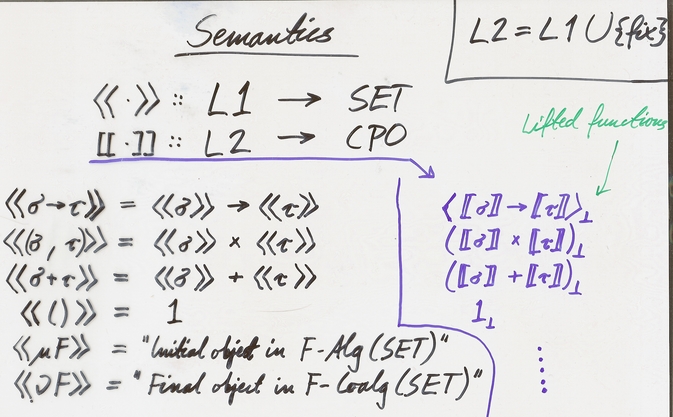 Semantics
L2 = L1 ∪ {fix}
⟪·⟫ :: L1 → SET
⟦·⟧ :: L2 → CPO
Lifted functions
⟪σ→τ⟫ = ⟪σ⟫ → ⟪τ⟫
⟪(σ, τ)⟫ = ⟪σ⟫ × ⟪τ⟫
⟪σ+τ⟫ = ⟪σ⟫ + ⟪τ⟫
⟪()⟫ = 1
⟪μF⟫ = "Initial object in F-Alg(SET)"
⟪νF⟫ = "Final object in F-Coalg(SET)"
⟨⟦σ⟧→⟦τ⟧⟩⊥
(⟦σ⟧ × ⟦τ⟧)⊥
(⟦σ⟧ + ⟦τ⟧)⊥
1⊥
⋮